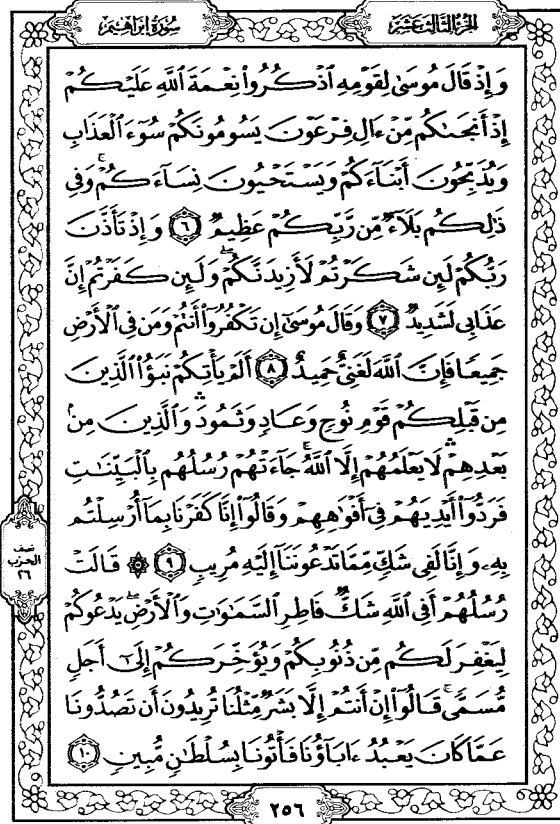 الجزء الثالث عشر
سورة ابراهيم
وَإِذْ قَالَ مُوسَىٰ لِقَوْمِهِ ٱذْكُرُوا۟ نِعْمَةَ ٱللَّهِ عَلَيْكُمْ
إِذْ أَنجَىٰكُم مِّنْ ءَالِ فِرْعَوْنَ يَسُومُونَكُمْ سُوٓءَ ٱلْعَذَابِ
وَيُذَبِّحُونَ أَبْنَآءَكُمْ وَيَسْتَحْيُونَ نِسَآءَكُمْ ۚ وَفِى
ذَٰلِكُم بَلَآءٌ مِّن رَّبِّكُمْ عَظِيمٌ ٦ وَإِذْ تَأَذَّنَ
رَبُّكُمْ لَئِن شَكَرْتُمْ لَأَزِيدَنَّكُمْ ۖ وَلَئِن كَفَرْتُمْ إِنَّ
عَذَابِى لَشَدِيدٌ ٧ وَقَالَ مُوسَىٰٓ إِن تَكْفُرُوٓا۟ أَنتُمْ وَمَن فِى ٱلْأَرْضِ
جَمِيعًا فَإِنَّ ٱللَّهَ لَغَنِىٌّ حَمِيدٌ ٨ أَلَمْ يَأْتِكُمْ نَبَؤُا۟ ٱلَّذِينَ
مِن قَبْلِكُمْ قَوْمِ نُوحٍ وَعَادٍ وَثَمُودَ ۛ وَٱلَّذِينَ مِنۢ
بَعْدِهِمْ ۛ لَا يَعْلَمُهُمْ إِلَّا ٱللَّهُ ۚ جَآءَتْهُمْ رُسُلُهُم بِٱلْبَيِّنَـٰتِ
فَرَدُّوٓا۟ أَيْدِيَهُمْ فِىٓ أَفْوَٰهِهِمْ وَقَالُوٓا۟ إِنَّا كَفَرْنَا بِمَآ أُرْسِلْتُم
بِهِۦ وَإِنَّا لَفِى شَكٍّ مِّمَّا تَدْعُونَنَآ إِلَيْهِ مُرِيبٍ ٩ ۞ قَالَتْ
رُسُلُهُمْ أَفِى ٱللَّهِ شَكٌّ فَاطِرِ ٱلسَّمَـٰوَٰتِ وَٱلْأَرْضِ ۖ يَدْعُوكُمْ
لِيَغْفِرَ لَكُم مِّن ذُنُوبِكُمْ وَيُؤَخِّرَكُمْ إِلَىٰٓ أَجَلٍ
مُّسَمًّى ۚ قَالُوٓا۟ إِنْ أَنتُمْ إِلَّا بَشَرٌ مِّثْلُنَا تُرِيدُونَ أَن تَصُدُّونَا
عَمَّا كَانَ يَعْبُدُ ءَابَآؤُنَا فَأْتُونَا بِسُلْطَـٰنٍ مُّبِينٍ ١٠
نصف
الحزب
٢٦
٢٥٦